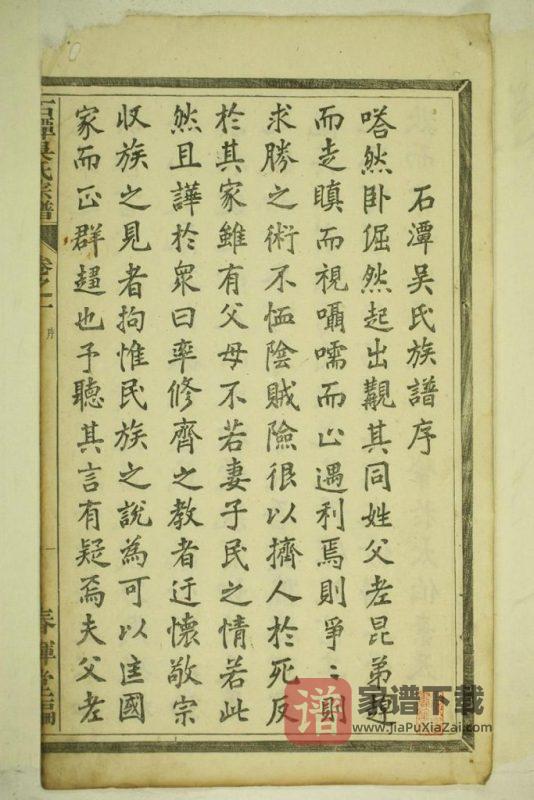 石潭吴氏族譜序
嗒然卧倨然起出覯其同姓父老昆弟趋
而走瞋而視囁嚅而止遇利焉則爭〻則
求勝之術不恤陰賊險很以擠人於死反
於其家雖有父母不若妻子民之情若此
然且譁於眾曰率修齊之教者迂懷敬宗
収族之見者拘惟民族之說為可以匡國
家而正群趨也予聽其言有疑焉夫父老
石潭吳氏宗譜
卷之一
序
春暉堂
家谱下载
www.JiaPuXiaZai.com
谱